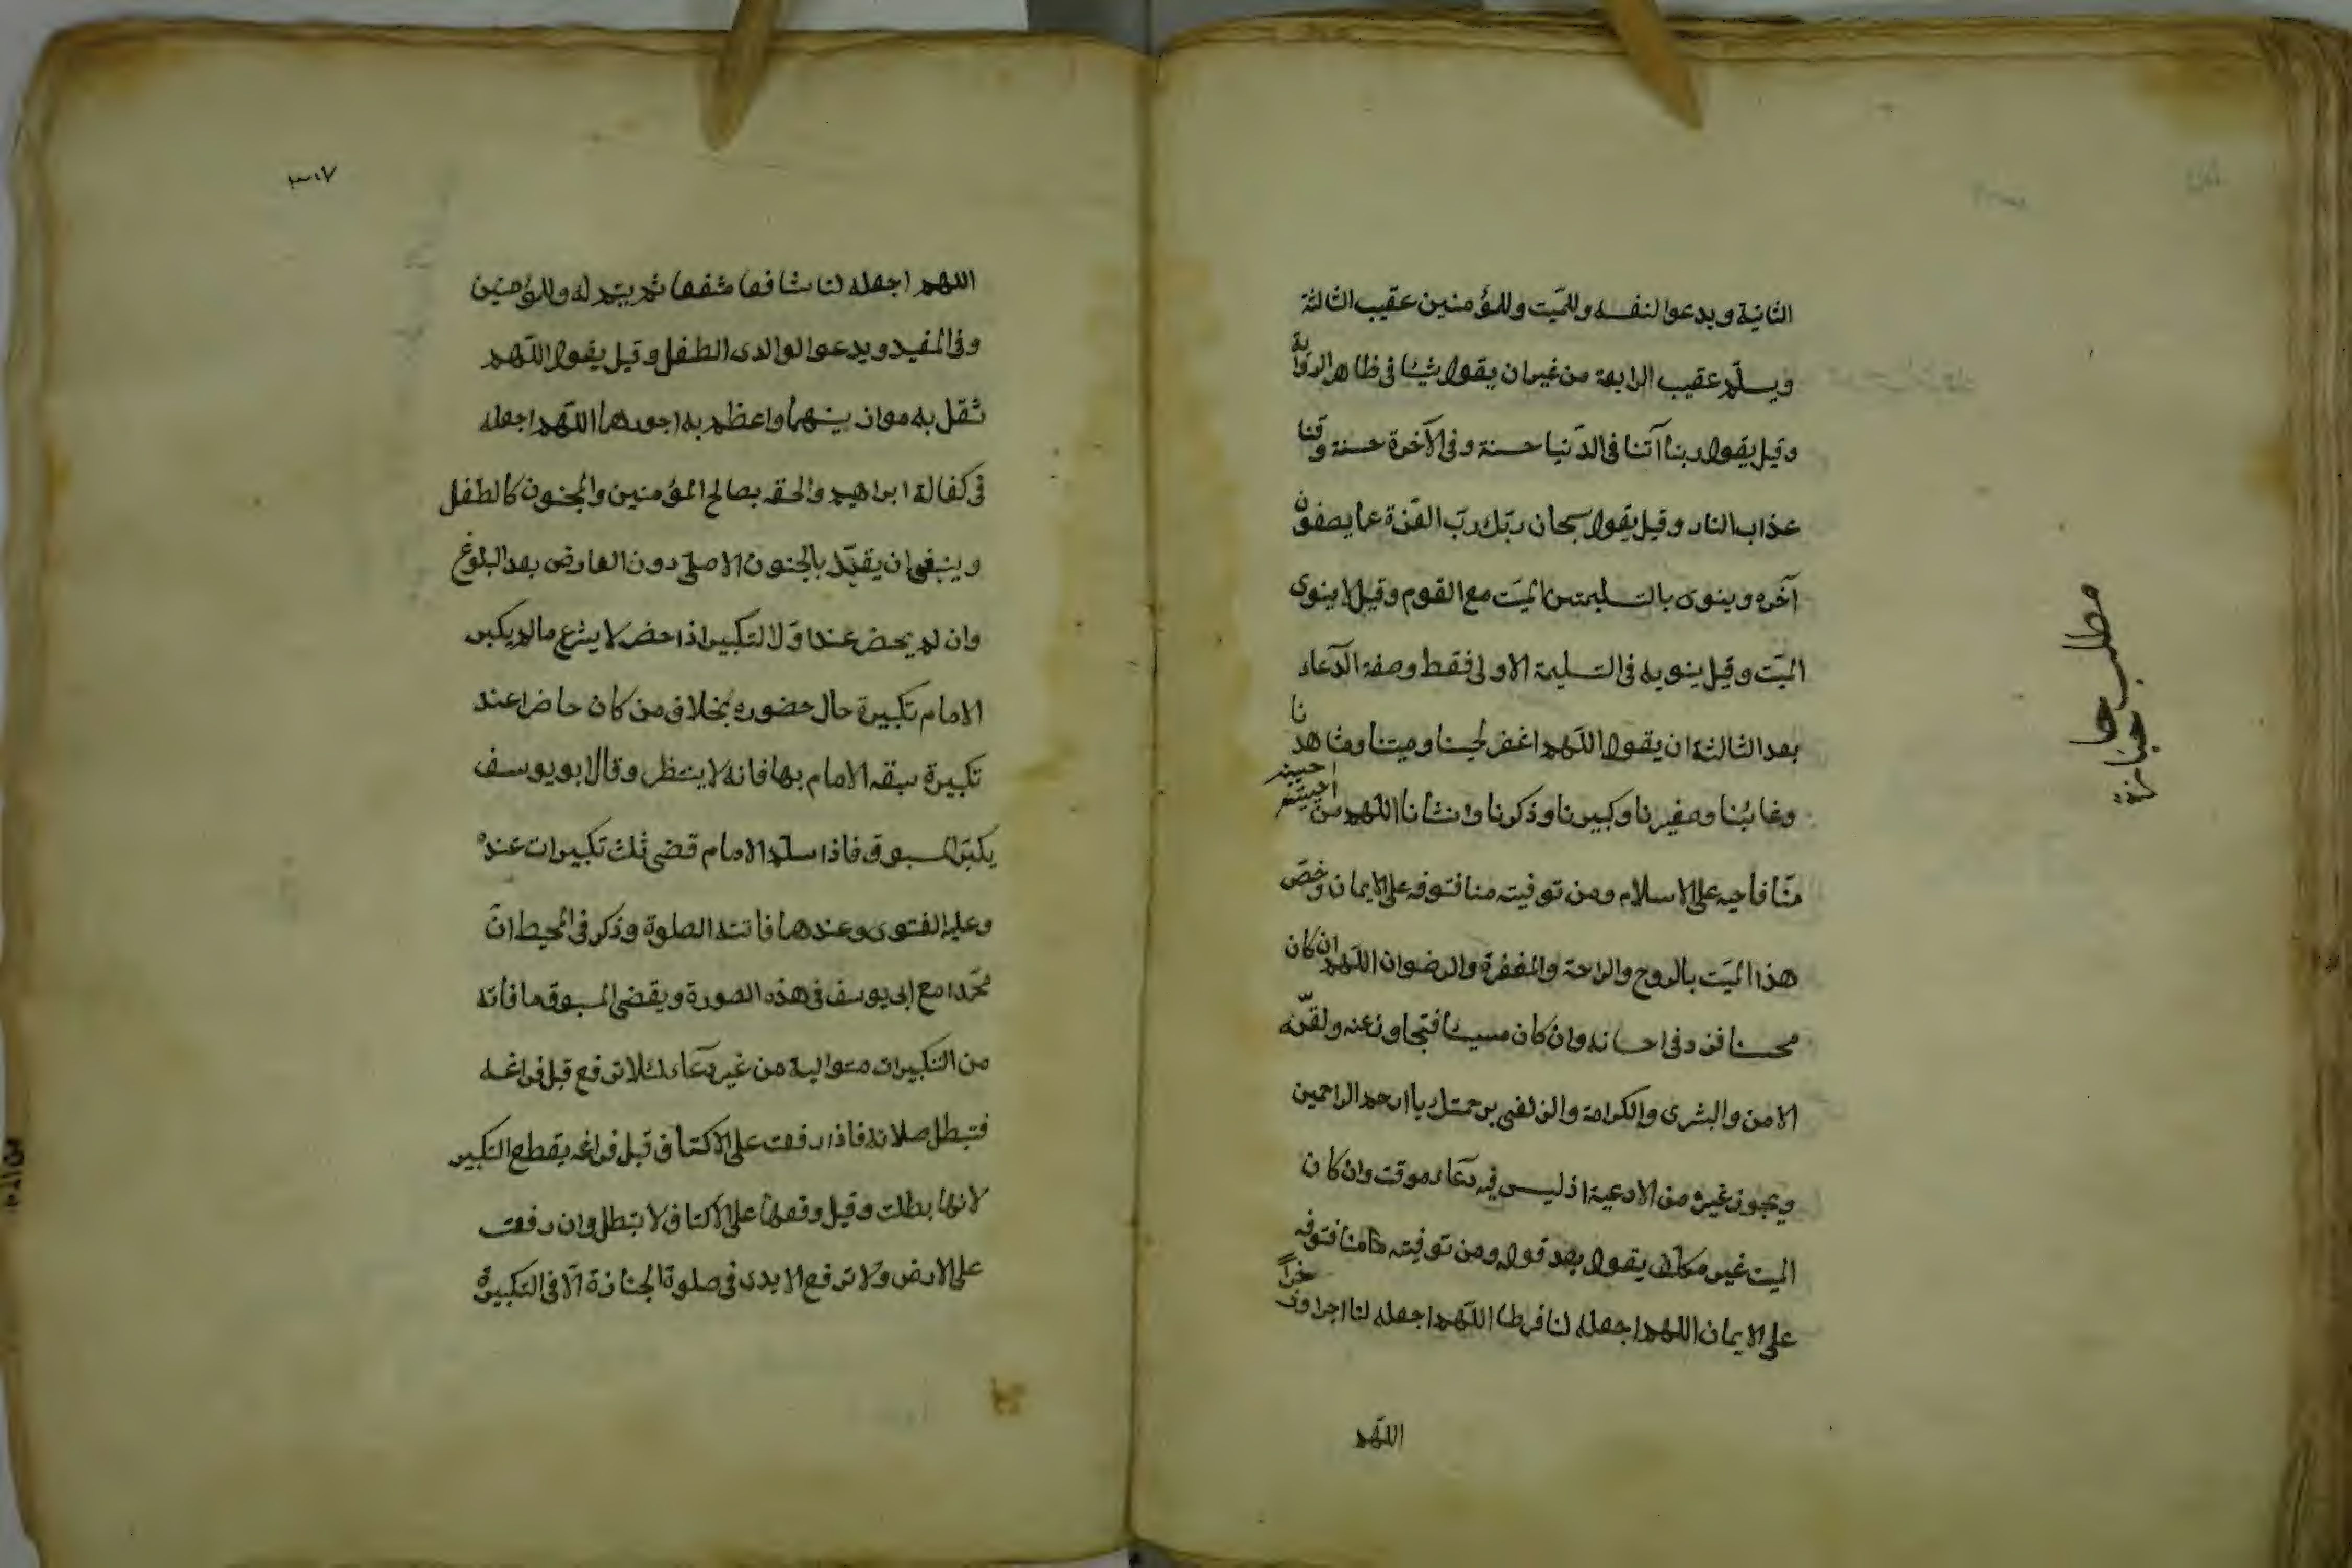 الثانية ويدعوا لنفسه وللميّت وللمؤمنين عقيب الثالثة
ويسلّم عقيب الرابعة من غير ان يقول شيئا فى ظاهر الرواية
وقيل يقول ربنا آتنا فى الدّنيا حسنة وفى الآخرة حسنة وقنا
عذاب النار وقيل يقول سبحان ربّك ربّ العزّة عما يصفون
آخره وينوى بالتسليمتين الميّت مع القوم وقيل لا ينوى
الميّت وقيل ينويه فى التسليمة الاولى فقط وصفة الدّعاء
بعد الثالثة ان يقول اللّهم اغفر لحينا وميتنا وشاهدنا
وغائبنا وصغيرنا وكبيرنا وذكرنا وانثانا اللهم من احييته
منّا فاحيه على الاسلام ومن توفيته منا فتوفه على الايمان وخصّ
هذا الميّت بالروح والراحة والمغفرة والرضوان اللّهم ان كان
محسنا فزد فى احسانه وان كان مسيئا فتجاوز عنه ولقّه
الامن والبشرى والكرامة والزلفى برحمتك يا ارحم الراحمين
ويجوز غيره من الادعية اذ ليس فيه دعاء موقت وان كان
الميت غير مكلف يقول بعد قوله ومن توفيته منا فتوفه
على الايمان اللهم اجعله لنا فرطا اللّهم اجعله لنا اجرا وذخراً
اللّهم
مطلب جنازة
٣٠٧
اللهم اجعله لنا شافعا مشفعا ثم يتم له وللمؤمنين
وفى المفيد ويدعوا لوالدى الطفل وقيل يقول اللّهم
ثقل به موازينهما واعظم به اجورهما اللّهم اجعله
فى كفالة ابراهيم والحقه بصالح المؤمنين والمجنون كالطفل
وينبغى ان يقيّد بالجنون الاصلى دون العارض بعد البلوغ
وان لم يحضر عند اوّل التكبير اذا حضر لا يشرع ما لم يكبر
الامام تكبيرة حال حضوره بخلاف من كان حاضرا عند
تكبيرة سبقه الامام بها فانه لا ينتظر وقال ابو يوسف
يكبّر المسبوق فاذا سلم الامام قضى ثلث تكبيرات عنده
وعليه الفتوى وعندهما فاتته الصلوة وذكر فى المحيط انّ
محّمدا مع ابى يوسف فى هذه الصورة ويقضى المسبوق ما فاته
من التكبيرات متوالية من غير دعاء لئلا ترفع قبل فراغه
فتبطل صلاته فاذا رفعت على الاكتاف قبل فراغه يقطع التكبير
لانها بطلت وقيل وقعها على الاكتاف لا تبطل وان رفعت
على الارض ولا ترفع الايدى فى صلوة الجنازة الّا فى التكبيرة